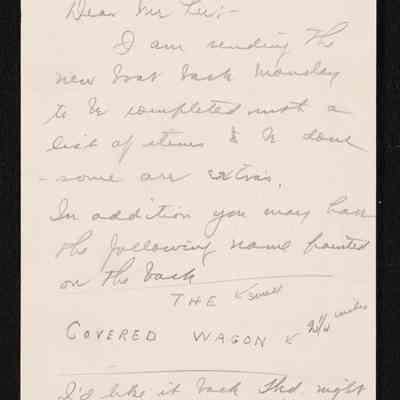 Dear Mr Lee:-
I am sending the
new boat back Monday
to be completed with a
list of items to be done
- some are extras.
In addition you may have
the following name painted
on the back
THE ← small
COVERED WAGON ← 2 1/2 inches
I'd like it back Thd. night